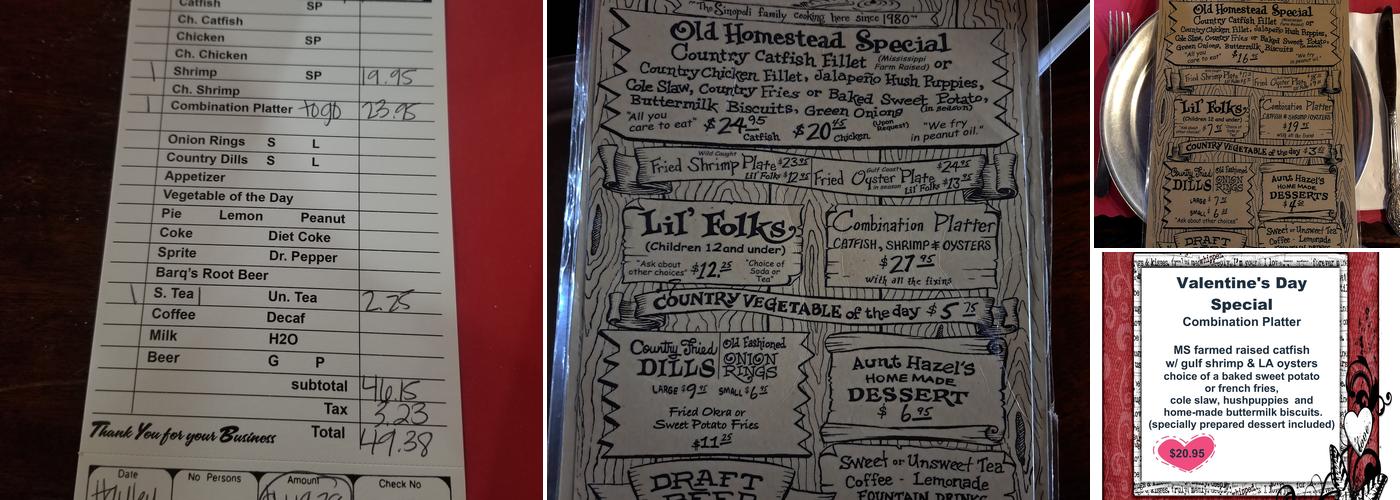 Catfish SP
Ch. Catfish
Chicken SP
Ch. Chicken
1 Shrimp SP 19.95
Ch. Shrimp
1 Combination Platter togo 23.95
Onion Rings S L
Country Dills S L
Appetizer
Vegetable of the Day
Pie Lemon Peanut
Coke Diet Coke
Sprite Dr. Pepper
Barq's Root Beer
1 S. Tea Un. Tea 2.25
Coffee Decaf
Milk H2O
Beer G P
subtotal 46.15
Tax 3.23
Thank You for your Business Total 49.38
Date No Persons Amount Check No
"The Sinopoli family cooking here since 1980"
Old Homestead Special
Country Catfish Fillet (Mississippi Farm Raised) or
Country Chicken Fillet, Jalapeño Hush Puppies,
Cole Slaw, Country Fries or Baked Sweet Potato,
Buttermilk Biscuits, Green Onions (in season)
"All you care to eat" $24.95 Catfish $20.45 Chicken (Upon Request) "We fry in peanut oil."
Wild Caught
Fried Shrimp Plate $23.95
Lil' Folks $12.95
Gulf Coast
Fried Oyster Plate $24.95
in season Lil' Folks $13.95
Lil' Folks
(Children 12 and under)
"Ask about other choices" $12.25 "Choice of Soda or Tea"
Combination Platter
CATFISH, SHRIMP & OYSTERS
$27.95
with all the fixins
COUNTRY VEGETABLE of the day $5.75
Country Fried DILLS
Old Fashioned ONION RINGS
LARGE $9.95 SMALL $6.95
Fried Okra or
Sweet Potato Fries
$11.25
Aunt Hazel's
HOME MADE
DESSERT
$6.95
DRAFT
BEER
Sweet or Unsweet Tea
Coffee - Lemonade
FOUNTAIN DRINKS
Old Homestead Special
Country Catfish Fillet (Mississippi Farm Raised) or
Country Chicken Fillet, Jalapeño Hush Puppies,
Cole Slaw, Country Fries or Baked Sweet Potato,
Green Onions, Buttermilk Biscuits
"All you care to eat" "We fry in peanut oil."
Fried Shrimp Plate
Fried Oyster Plate
Lil' Folks
(Children 12 and under)
Combination Platter
CATFISH, SHRIMP & OYSTERS
$19.95
with all the fixins
COUNTRY VEGETABLE of the day
Country Fried DILLS
Old Fashioned ONION RINGS
LARGE
SMALL
"Ask about other choices"
Aunt Hazel's
HOME MADE
DESSERTS
Sweet or Unsweet Tea
Coffee - Lemonade
DRAFT
Valentine's Day
Special
Combination Platter
MS farmed raised catfish
w/ gulf shrimp & LA oysters
choice of a baked sweet potato
or french fries,
cole slaw, hushpuppies and
home-made buttermilk biscuits.
(specially prepared dessert included)
$20.95